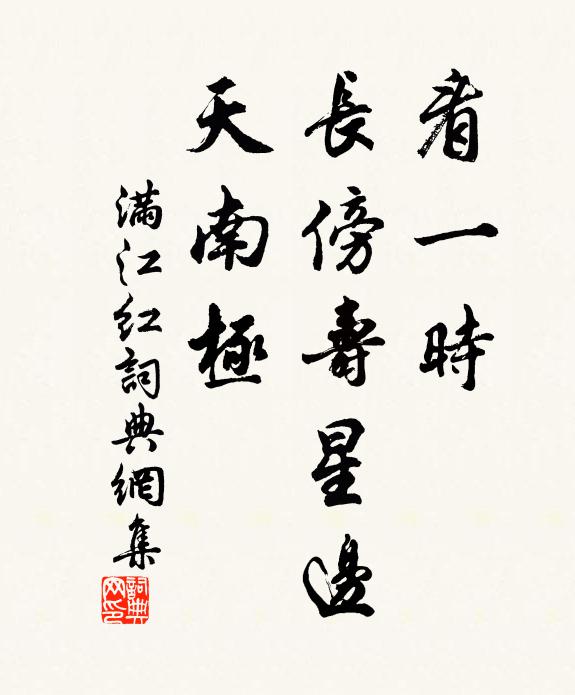 看一時
長傍壽星邊
天南極
滿江紅詞典網集
詞典
网印